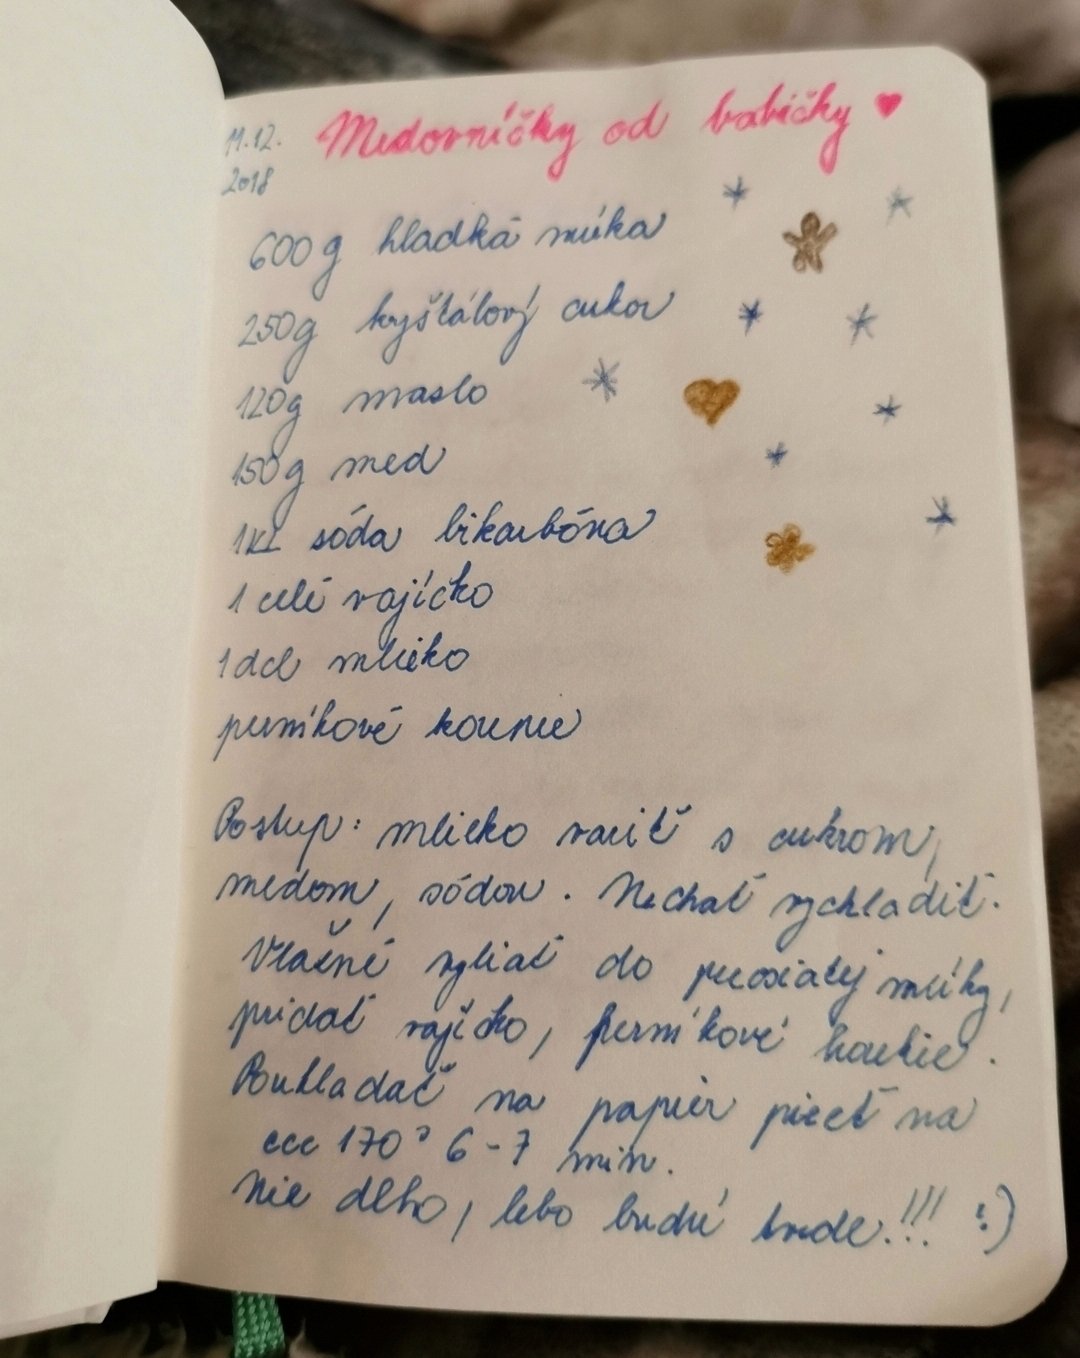 11.12.
2018
Medovníčky od babičky ♥
600g hladká múka
250g kryštálový cukor
120g maslo
150g med
1KL sóda bikarbóna
1 celé vajíčko
1dcl mlieko
perníkové korenie
Postup: mlieko variť s cukrom,
medom, sódou. Nechať vychladiť.
Vlažné vyliať do preosiatej múky,
pridať vajíčko, perníkové korenie.
Poukladať na papier piecť na
ccc 170° 6-7 min.
Nie dlho, lebo budú tvrdé!!! :)